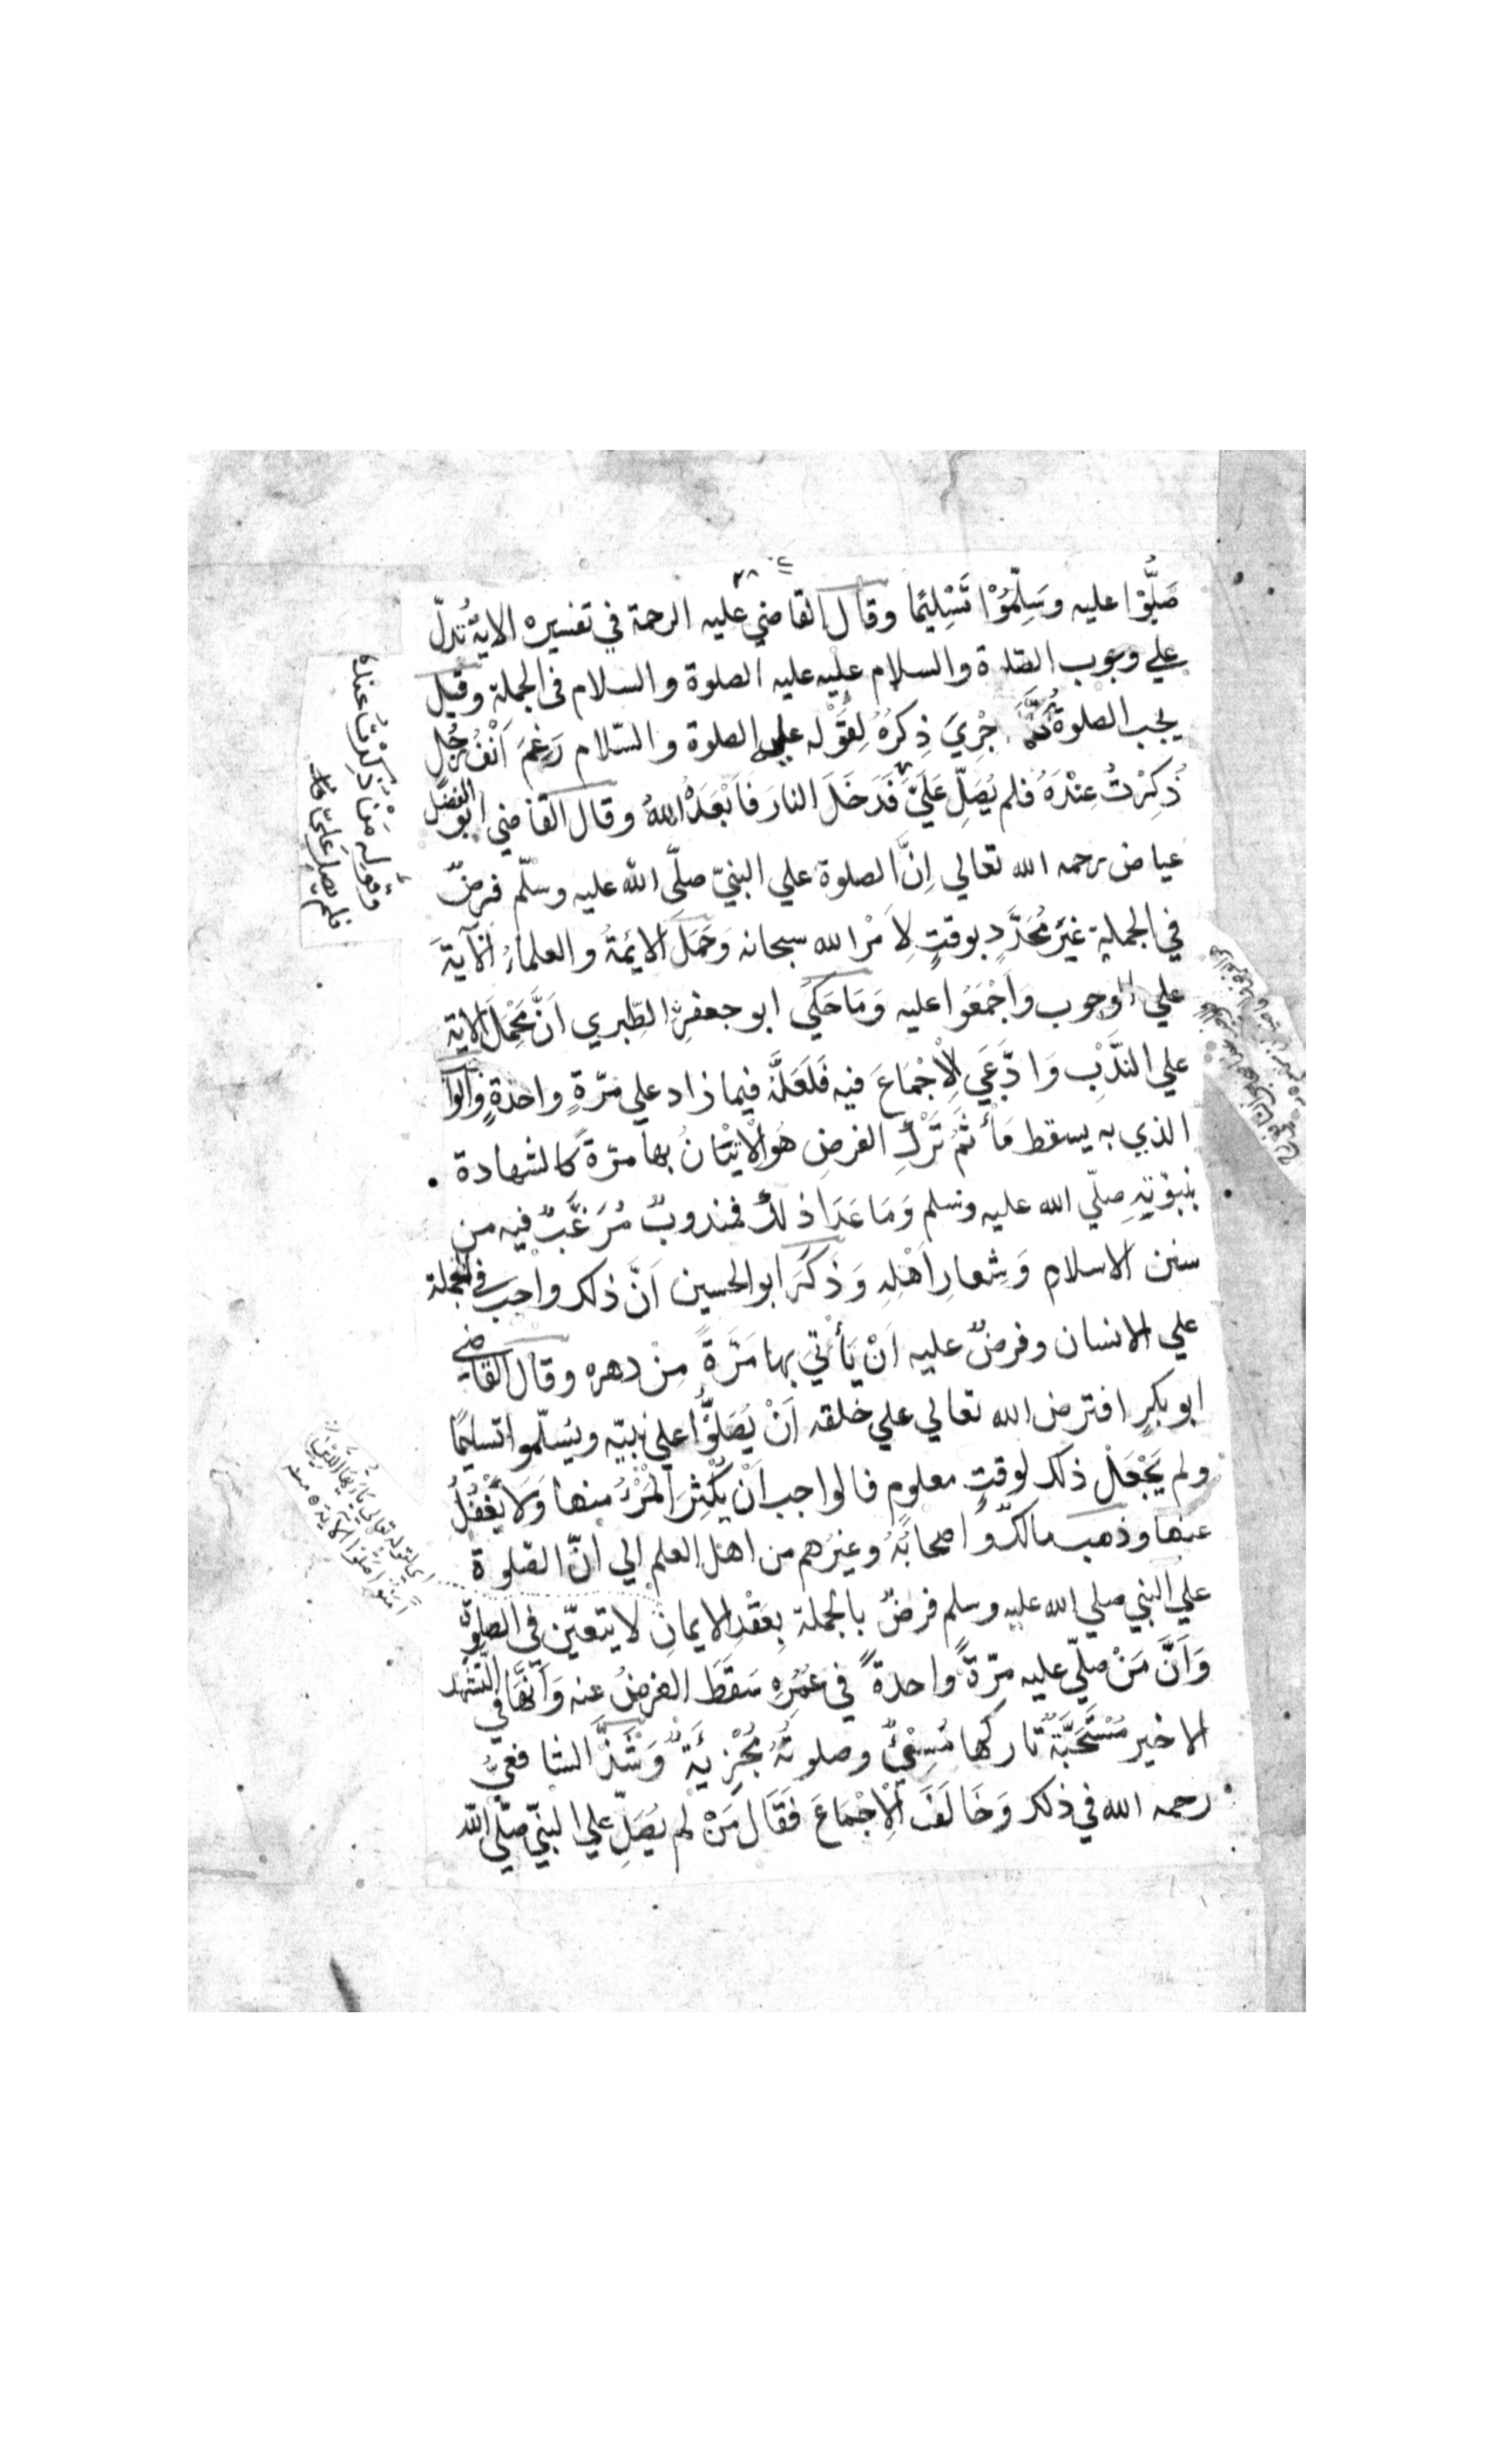 ٢٨
صَلُّوْا عليه وسَلِّمُوْا تَسْلِيْمًا وقال القاضي عليه الرحمة في تفسيره الاية تُدلّ
علي وجوب الصلاة والسلام عليه عليه الصلوة والسلام في الجملة وقيل
يجب الصلوة كُلَّمَا جْرِيَ ذِكرُهُ لِقَوْله عليه الصلوة والسّلام رَغِمَ اَنْفُ رَجُلٍ
ذُكِرْتُ عِنْدَهُ فلم يُصَلِّ عَلَيَّ فَدَخَلَ النارَ فَاَبْعَدَهُ اللهُ وقال القاضي ابو الفضل
عياض رحمه الله تعالي اِنَّ الصلوة علي النبيّ صلَّي الله عليه وسلّم فرضٌ
في الجملة غيَر مُحَدَّدٍ بوقتٍ لِاَمْرِ الله سبحانه وَحَمَلَ الائِمّةُ والعلماءُ الآيَةَ
علي الوجوب وَاَجْمَعُوا عليه وَمَا حَكَي ابو جعفرٍ الطِّبري اَنَّ مَحْمِلَ الاية
علي النَّدْبِ وَادَّعَي الْاِجْمَاعَ فيه فَلَعَلَّهُ فيما زاد علي مَرّةٍ واحدةٍ والوا
الذي به يسقط مَأْثَمُ تَرْكِ الفرضِ هُوَ الْاِتْيَانُ بها مرّةً كالشهادة
بنبوّتِهِ صلّي الله عليه وسلم وَمَا عَدَا ذلك فمندوبٌ مُرَغَّبٌ فيه من
سنن الاسلام وَشِعارِ اَهْلِهِ وَذَكَرَ ابو الحسين اَنَّ ذلك واجب في الجملة
علي الانسان وفرضٌ عليه اَنْ يَأْتِيَ بها مَرَّةً مِنْ دهره وقال القاضي
ابو بكرٍ افترض الله تعالي علي خلقه اَنْ يُصَلُّوا علي نبيّه ويُسلّموا تسليمًا
ولم يَجْعَلْ ذلك لوقتٍ معلومٍ فالواجب اَنْ يُكْثِرَ الْمَرْءُ منها وَلَا يَغْفُلُ
عنها وذهب مالكٌ واصحابُهُ وغيرُهم من اهل العلم الي انّ الصّلوة
علي النبي صلي الله عليه وسلم فرضٌ بالجملة بِعَقْدِ الايمانِ لا يتعيّن في الصلوة
وَاَنَّ مَنْ صلّي عليه مرّةً واحدةً في عُمُرِهِ سَقَطَ الفرضُ عنه وَاَنَّهَا في التّشهد
الاخير مُسْتَحَبَّةٌ تاركها مُسِيْئٌ وصلوتُهُ مُجْزِئَةٌ وَشَذَّ الشافعيُّ
رحمه الله في ذلك وَخَالَفَ الْاِجْمَاعَ فَقَالَ مَنْ لم يُصَلِّ علي النبيّ صلّي الله
وقوله مَنْ ذُكِرْتُ عنده
فلم يصل عَلَيَّ
اي لقوله تعالي يَا اَيُّهَا الَّذِيْنَ
آمَنُوْا صَلُّوْا الاية منه